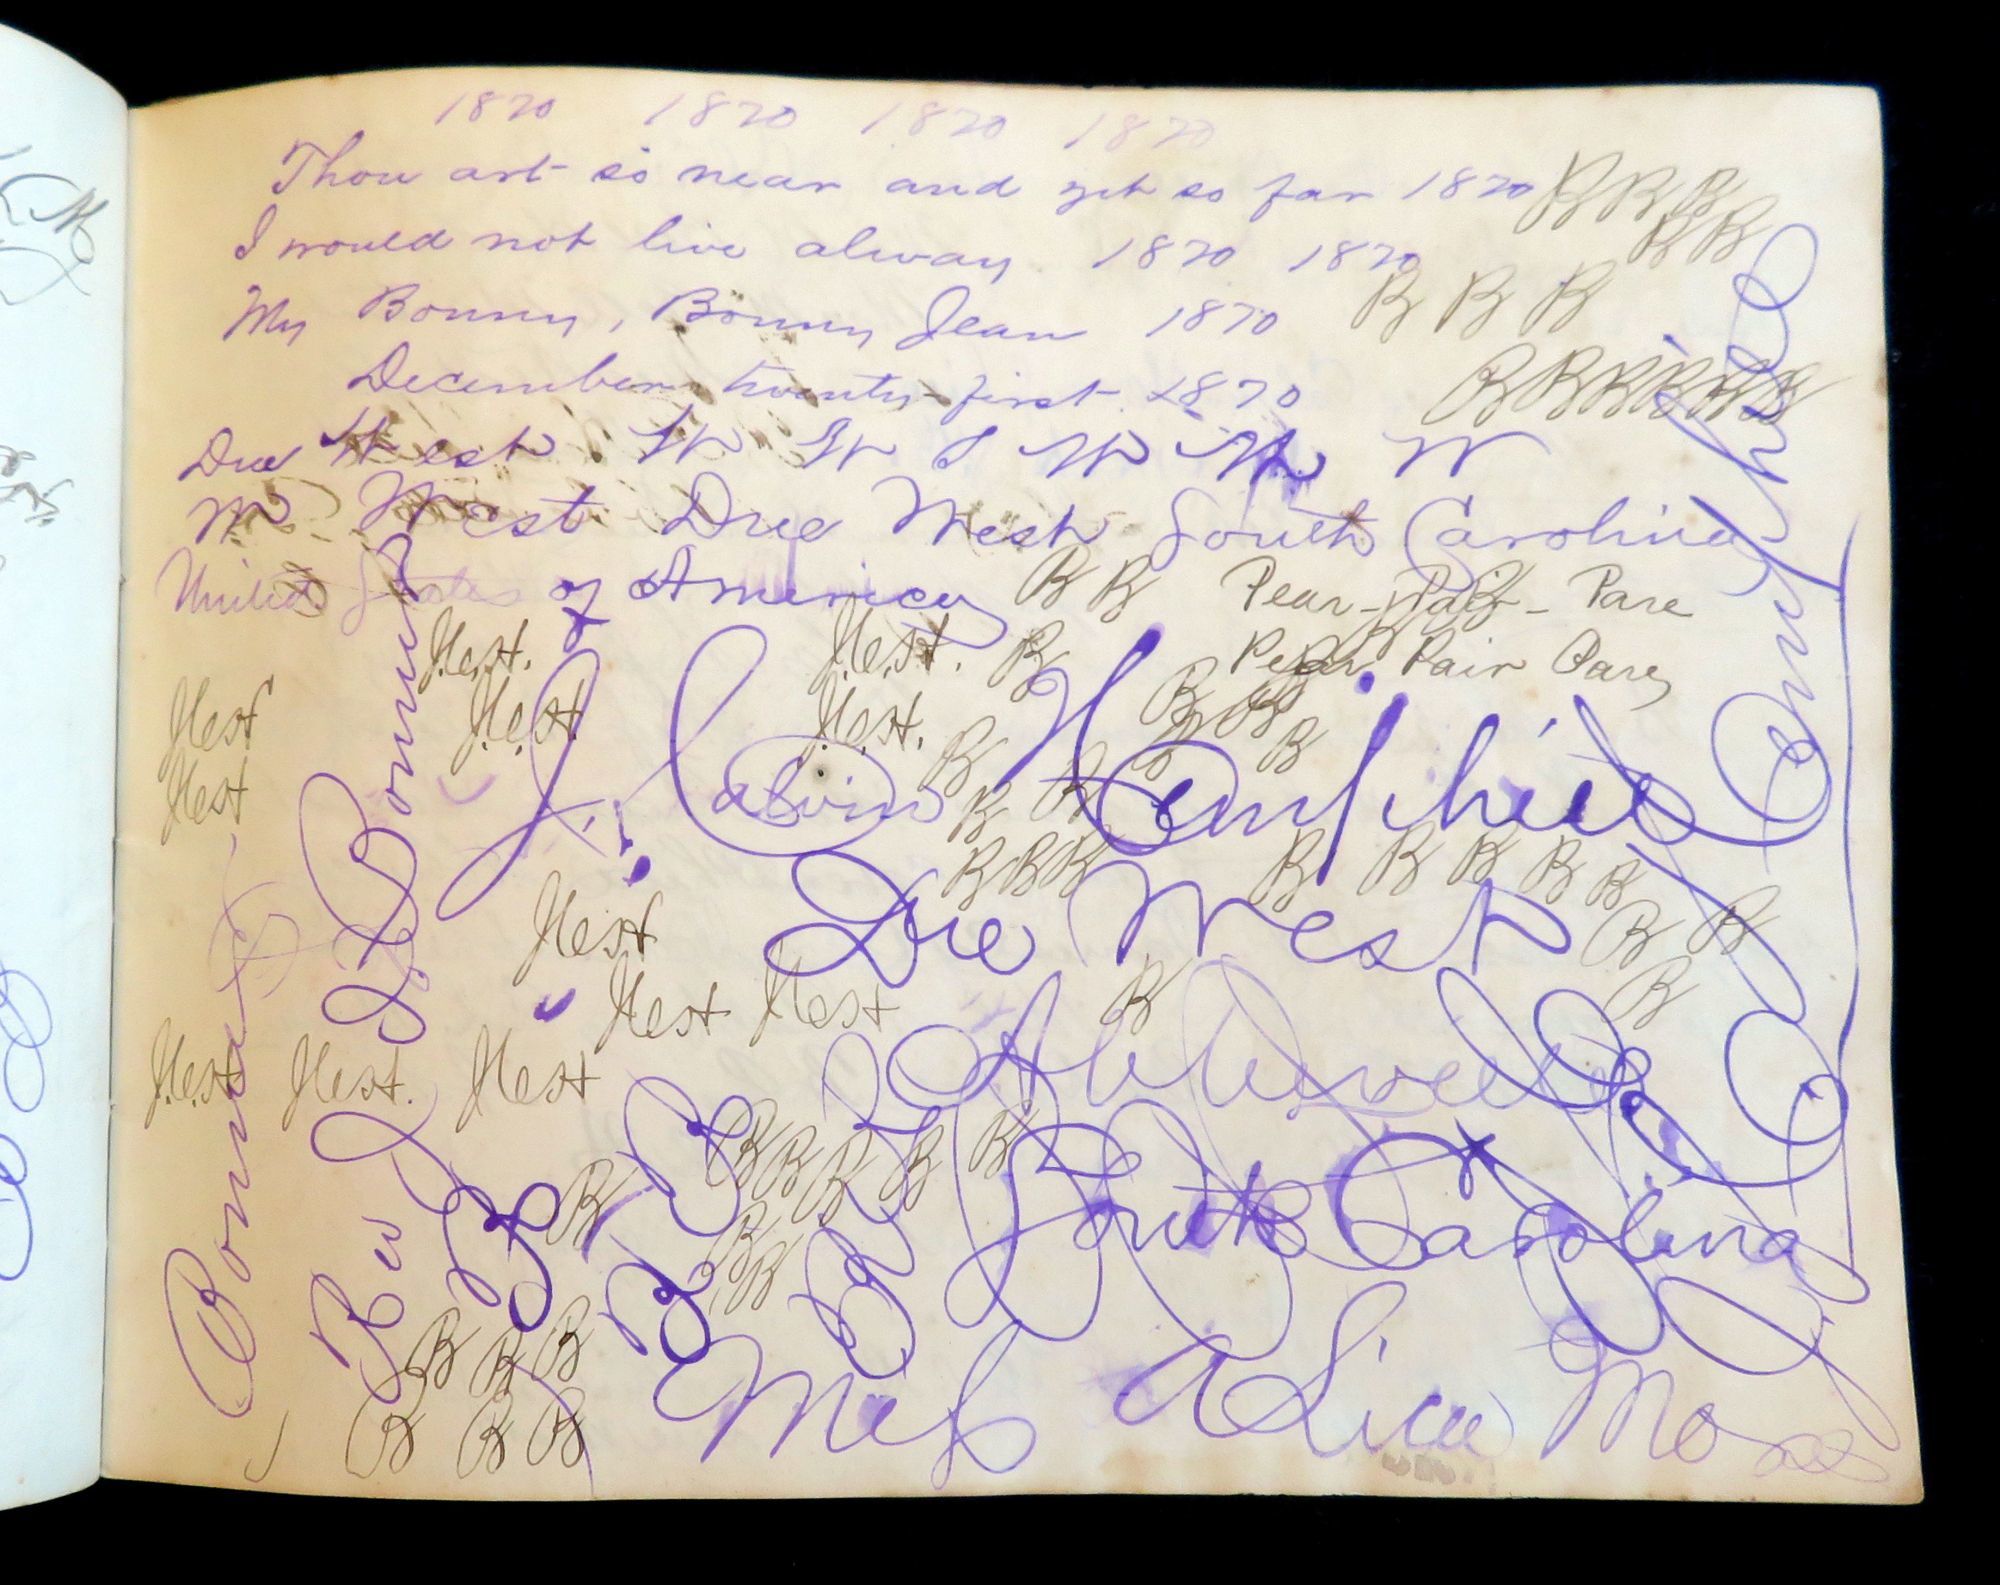 1870 1870 1870 1870
Thou art so near and yet so far 1870 B B B
B B
I would not live alway 1870 1870
My Bonny, Bonny Jean 1870 B B B
December twenty-first 1870 B B B B B B
Due West. W W S W W W
W West Due West South Carolina
United States of America B B Pear - Pair - Pare
West. West. B Pear Pair Pare
West West West. B B B
West B B B B
J. Calvin Hemphill
B B B B B B B B
Due West
West B B
West West B B
West West. West
Abbeville
B B B B B B
South Carolina
B B B B B B
B B B
Miss Alice
Bonner
Rev J. I. Bonner
Hemphill